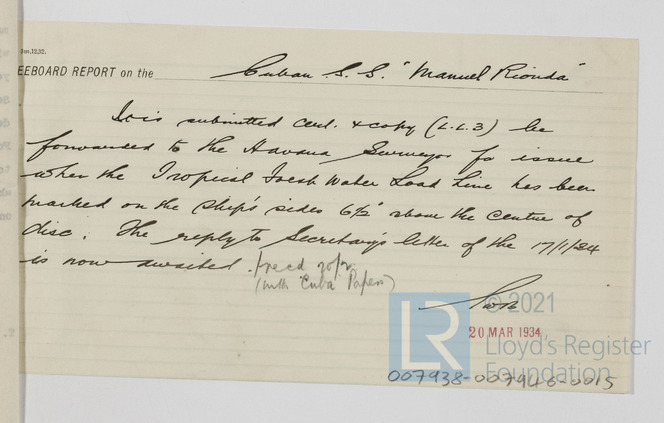 EEBOARD REPORT on the Cuban S.S. "Manuel Rionda"
It is submitted cert. & copy (L.L.3) be
forwarded to the Havana Surveyor for issue
when the Tropical Fresh Water Load Line has been
marked on the ship's sides 6½" above the centre of
disc. The reply to Secretary's letter of the 17/1/34
is now awaited.
rec'd
(with "Cuba Papers")
20 MAR 1934
© 2021
LR
Lloyd's Register
Foundation
007938-007946-0015